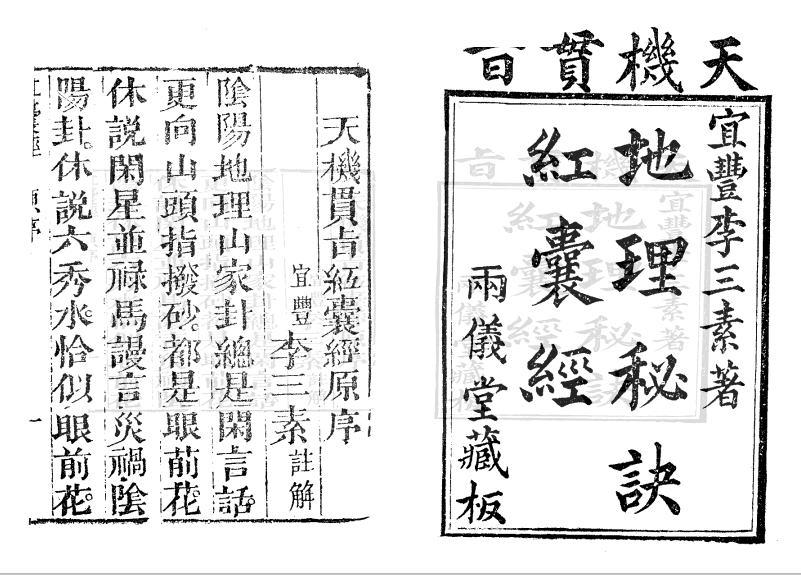 天機貫旨
宜豐李三素著
地理秘訣
紅囊經
兩儀堂藏板
天機貫旨紅囊經原序
宜豐李三素註解
陰陽地理山家卦總是閑言話。
更向山頭指撥砂。都是眼前花。
休説閑星並祿馬謾言災禍陰
陽卦。休説六秀水。恰似眼前花。